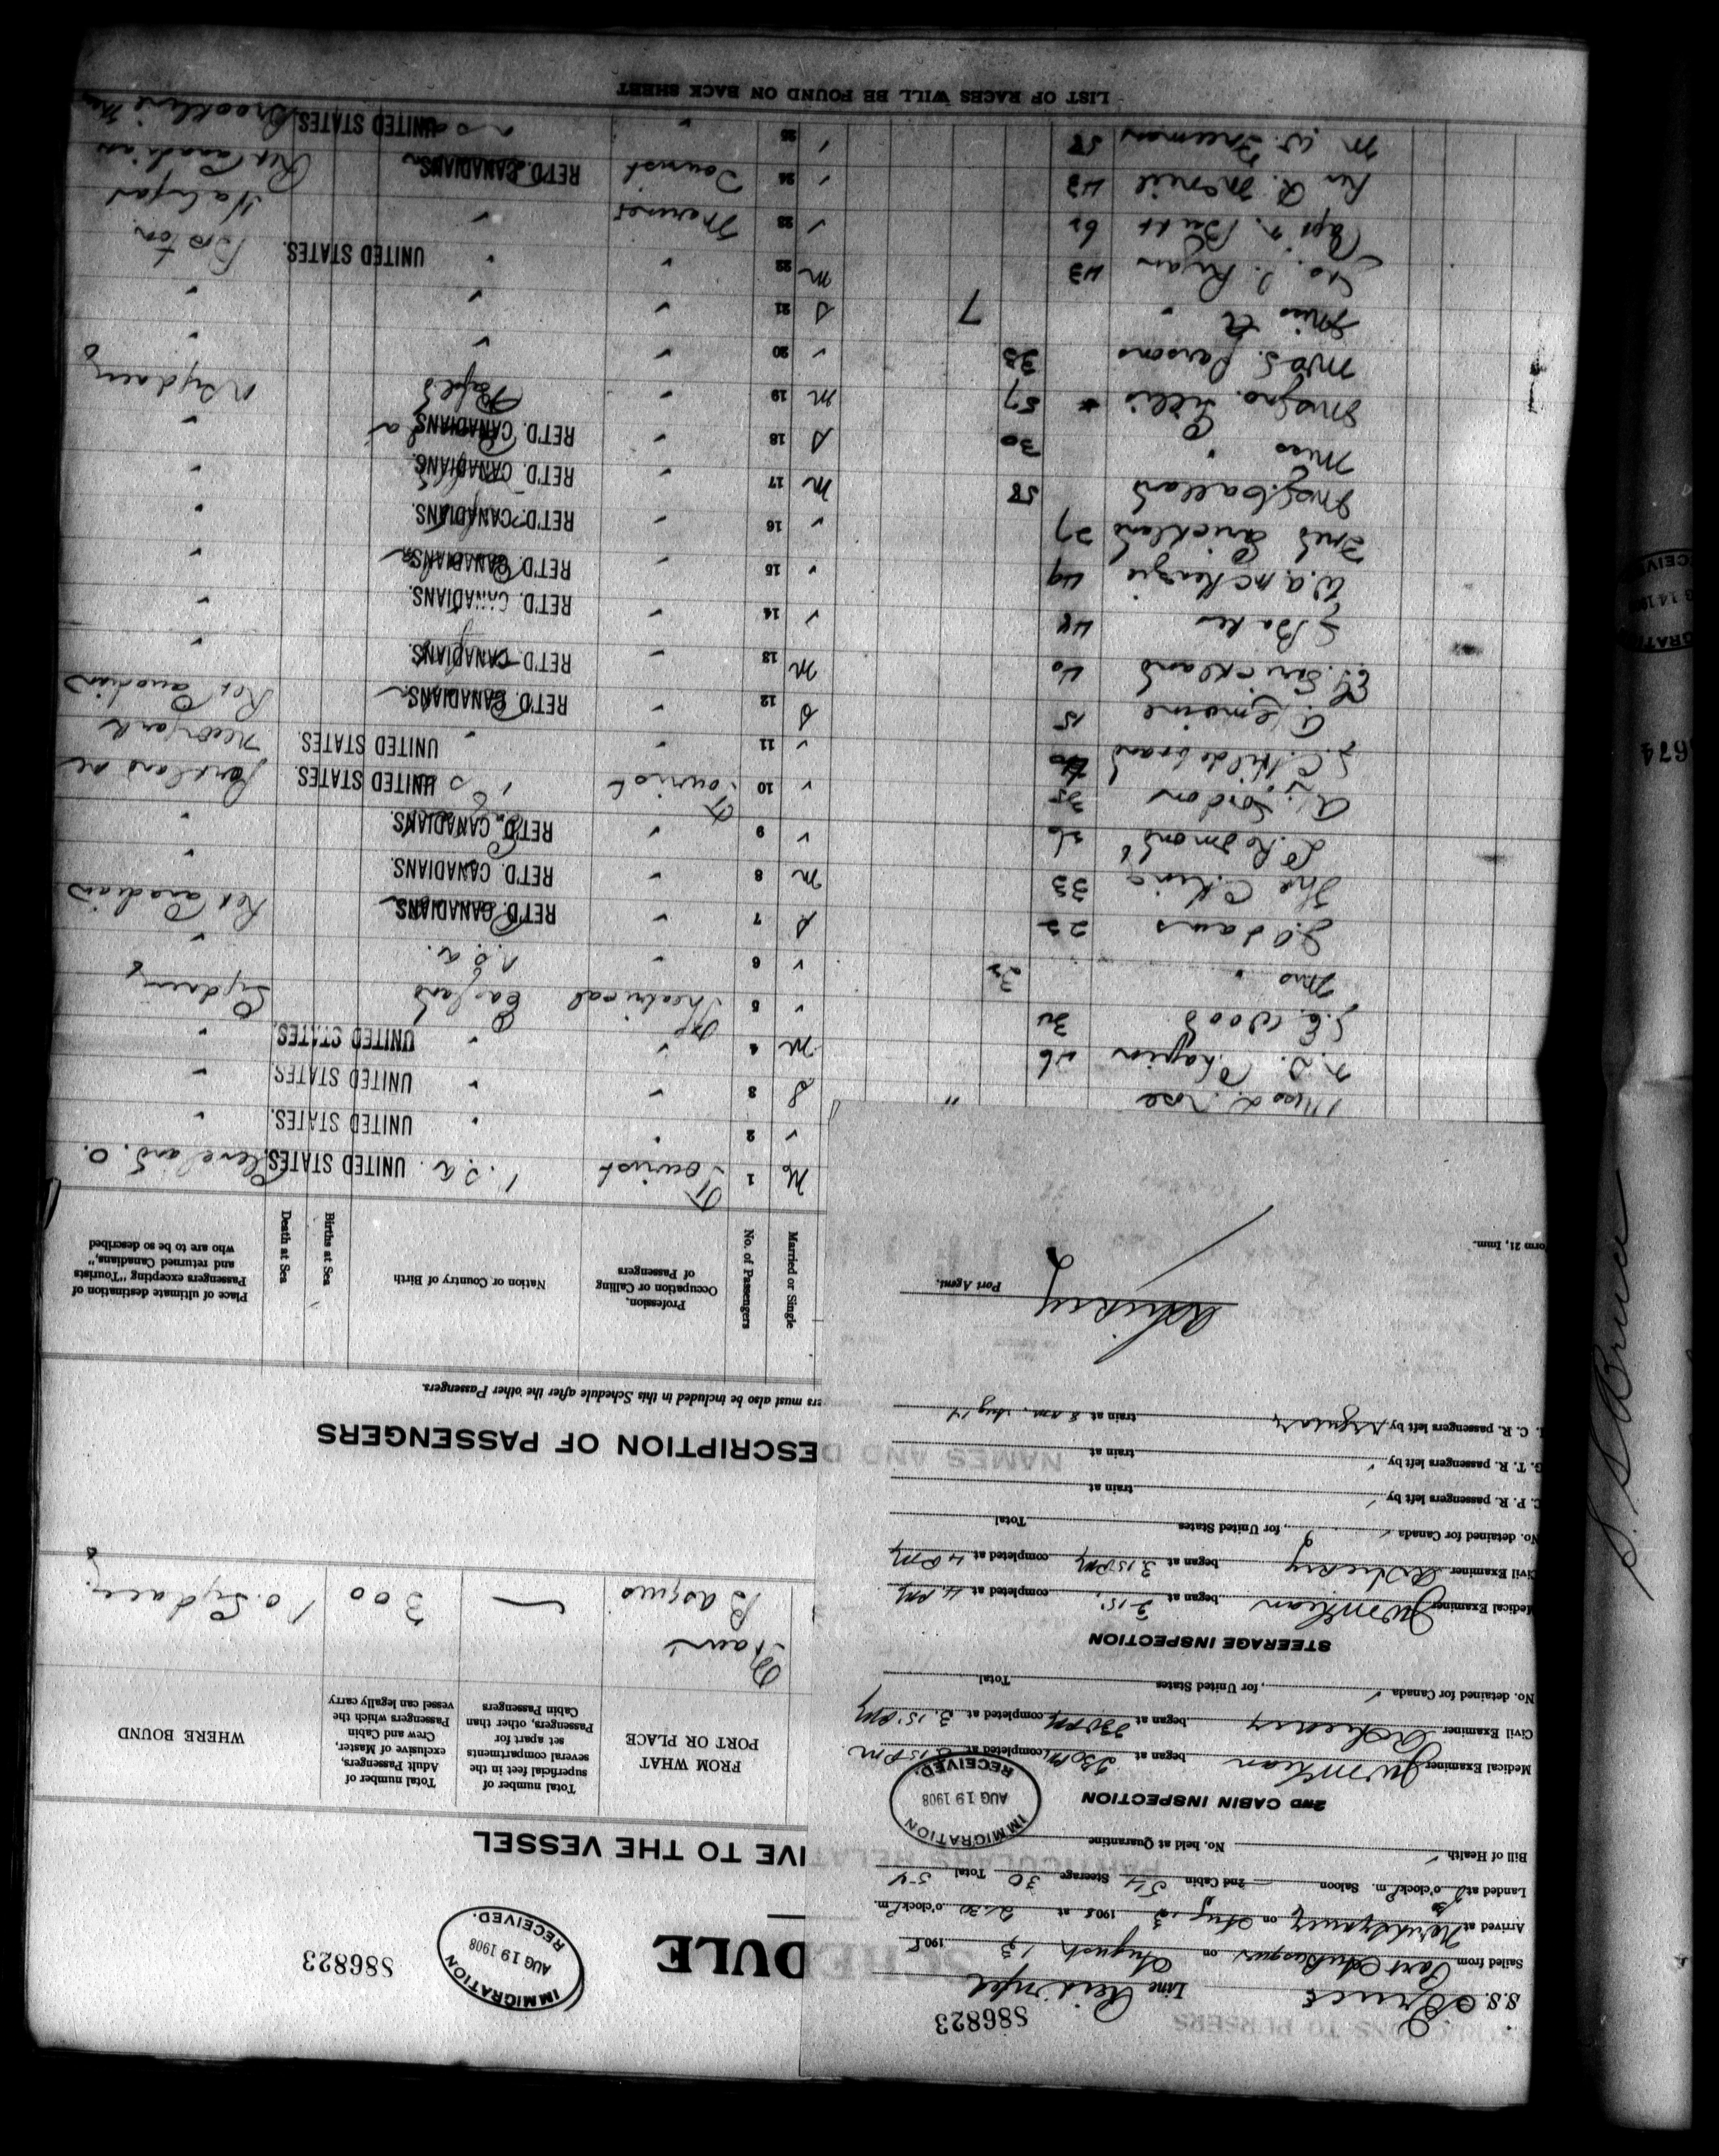 886823
S.S. Bruce Line Reid Nfld
Sailed from Port Aux Basques on August 13 1908
Arrived at North Sydney on Aug 13 1908 at 2:30 o'clock P.m.
Landed at o'clock P.m. Saloon 2nd Cabin 54 Steerage 30 Total 54
Bill of Health No. held at Quarantine
IMMIGRATION
AUG 19 1908
RECEIVED.
2ND CABIN INSPECTION
Medical Examiner began at 2.30 PM completed at 3.15 PM
Civil Examiner began at 2.30 PM completed at 3.15 PM
No. detained for Canada , for United States Total
STEERAGE INSPECTION
Medical Examiner began at 3.15 completed at 4 PM
Civil Examiner began at 3.15 PM completed at 4 PM
No. detained for Canada , for United States Total
C. P. R. passengers left by train at
G. T. R. passengers left by train at
I. C. R. passengers left by regular train at 8 am. Aug 14
Port Agent.
Form 21, Imm.
886823
IMMIGRATION
AUG 19 1908
RECEIVED.
SCHEDULE
PARTICULARS RELATIVE TO THE VESSEL
FROM WHAT PORT OR PLACE
Total number of superficial feet in the several compartments set apart for Passengers, other than Cabin Passengers
Total number of Adult Passengers, exclusive of Master, Crew and Cabin Passengers which the vessel can legally carry
WHERE BOUND
Basques
300
No. Sydney
NAMES AND DESCRIPTION OF PASSENGERS
must also be included in this Schedule after the other Passengers.
Married or Single
No. of Passengers
Profession, Occupation or Calling of Passengers
Nation or Country of Birth
Births at Sea
Death at Sea
Place of ultimate destination of Passengers excepting "Tourists and returned Canadians," who are to be so described
M 1 Tourist U.S.A. UNITED STATES. Cleveland. O.
2 UNITED STATES.
Miss L. Rose " S 3 UNITED STATES.
Chapin 26 M 4 UNITED STATES.
J. E. Wood 34 5 Theatrical England Sydney
Mrs " 32 6 U.S.A.
J. Adams 22 S 7 RET'D. CANADIANS. Ret Canadian
C. King 33 M 8 RET'D. CANADIANS.
L. Redmond 26 9 RET'D. CANADIANS.
A. Gordon 35 10 Tourist U S UNITED STATES. Portland Me
J. C. Hildebrand 11 UNITED STATES. New York
A. Lemoine 15 S 12 RET'D. CANADIANS. Ret Canadian
Strickland 40 M 13 RET'D. CANADIANS.
Baker 48 14 RET'D. CANADIANS.
W. A. McKenzie 49 15 RET'D. CANADIANS.
Fred Strickland 27 16 RET'D. CANADIANS.
Mrs J. Galland 58 M 17 RET'D. CANADIANS.
Miss " 30 S 18 RET'D. CANADIANS.
Mrs Jno. Lillis 57 M 19 Nfld N Sydney
Mrs S. Parsons 33 20
Miss A " 7 S 21
Geo. J. Ryan 43 M 22 UNITED STATES. Boston
Capt. Butt 62 23 Mariner Halifax
Rev R. McNeil 43 24 Tourist RET'D. CANADIANS. Ret Canadian
M. W. Freeman 58 25 UNITED STATES. Brookline Mass
LIST OF RACES WILL BE FOUND ON BACK SHEET
S.S. Bruce